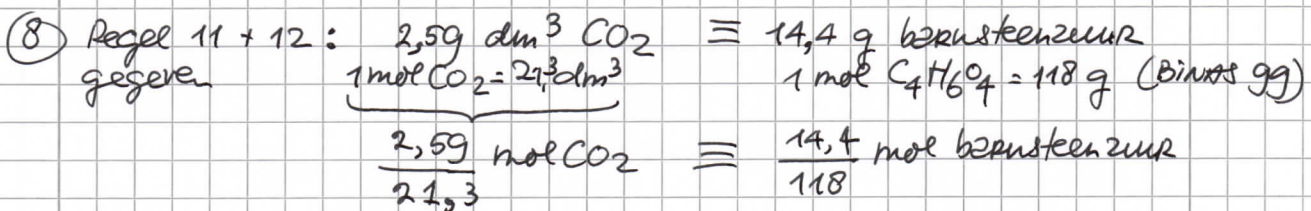 ⑧ Regel 11 + 12 : 2,59 dm³ CO2 ≡ 14,4 g barnsteenzuur
gegeven 1 mol CO2 = 21,3 dm³ 1 mol C4H6O4 = 118 g (BINAS 99)
2,59/21,3 mol CO2 ≡ 14,4/118 mol barnsteenzuur